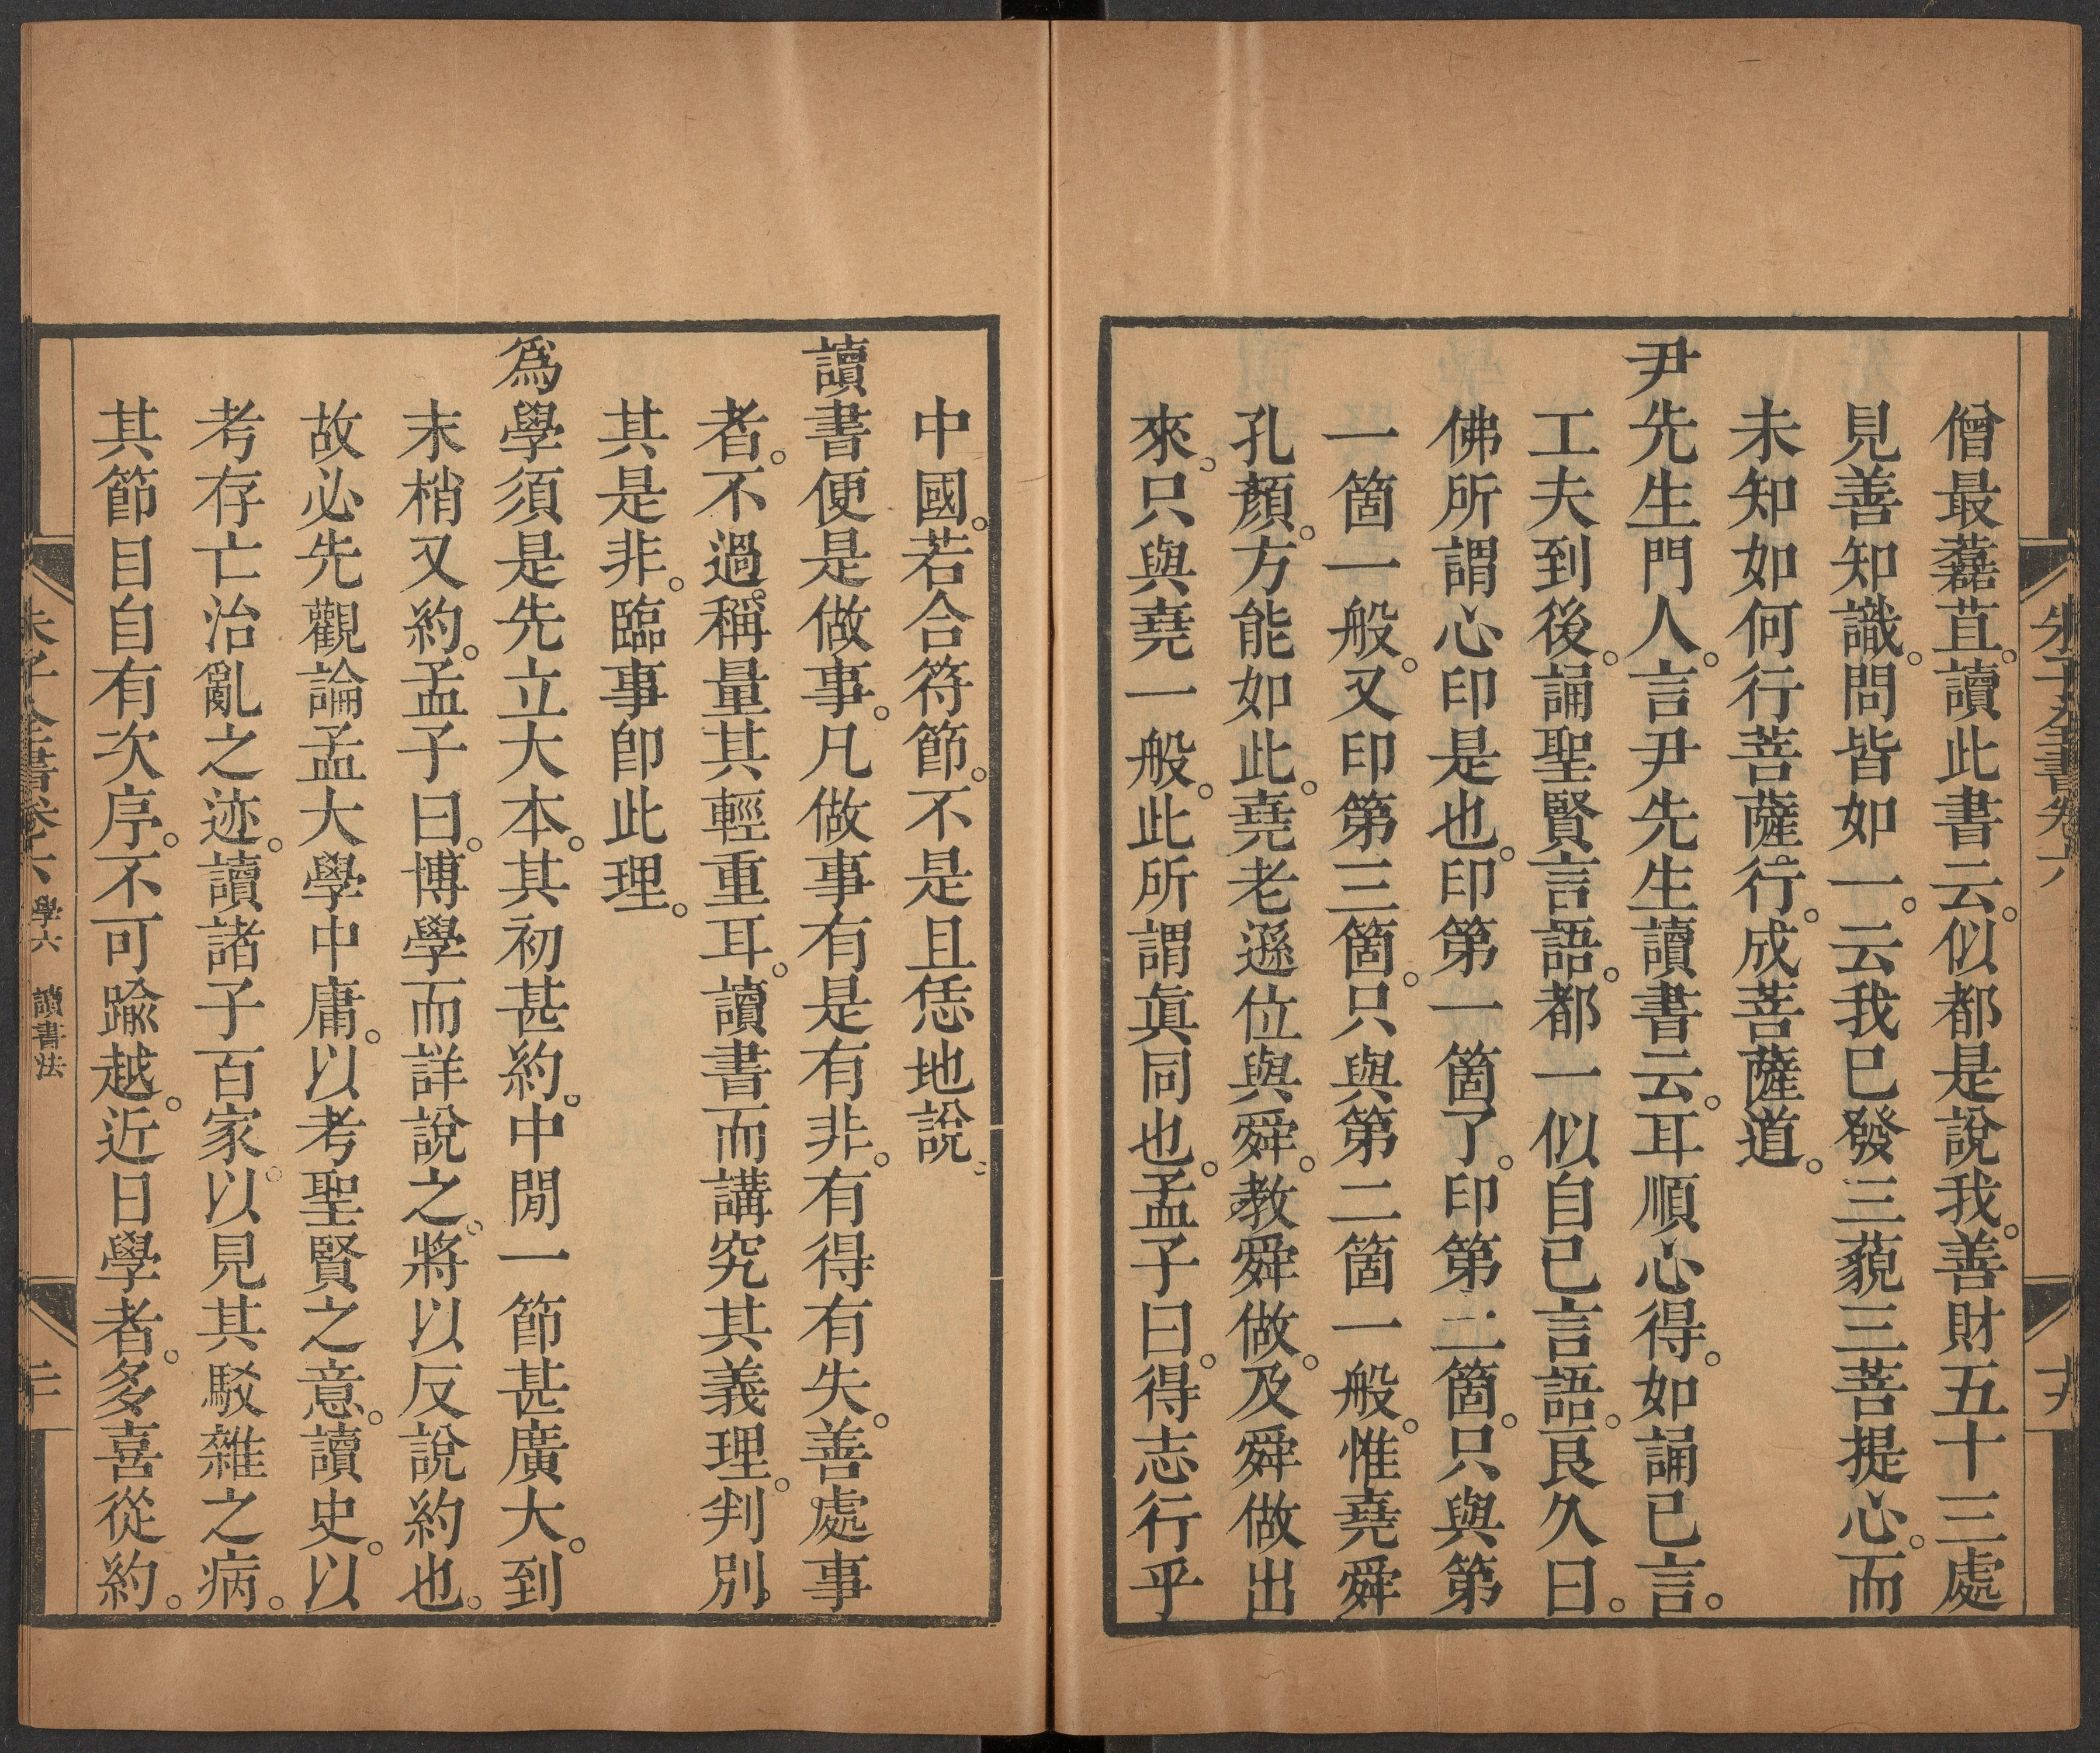 朱子全書卷六
十九
僧最蘽苴。讀此書云。似都是說我。善財五十三處
見善知識。問皆如一。云我已發三藐三菩提心。而
未知如何行菩薩行。成菩薩道。
尹先生門人。言尹先生讀書云。耳順心得。如誦己言。
工夫到後。誦聖賢言語。都一似自己言語。良久曰。
佛所謂心印是也。印第一箇了。印第二箇。只與第
一箇一般。又印第三箇。只與第二箇一般。惟堯舜
孔顏。方能如此。堯老遜位與舜。教舜做。及舜做出
來。只與堯一般。此所謂眞同也。孟子曰。得志行乎
中國。若合符節。不是且恁地說。
讀書便是做事。凡做事有是有非。有得有失。善處事
者。不過稱量其輕重耳。讀書而講究其義理。判別
其是非。臨事卽此理。
爲學須是先立大本。其初甚約。中閒一節甚廣大。到
末梢又約。孟子曰。博學而詳說之。將以反說約也。
故必先觀論孟大學中庸。以考聖賢之意。讀史。以
考存亡治亂之迹。讀諸子百家。以見其駁雜之病。
其節目自有次序。不可踰越。近日學者。多喜從約。
朱子全書卷六 學六 讀書法
二十